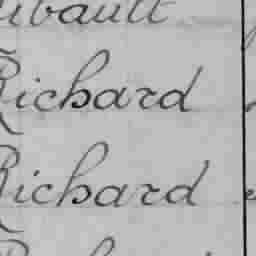 ibault
Richard
Richard